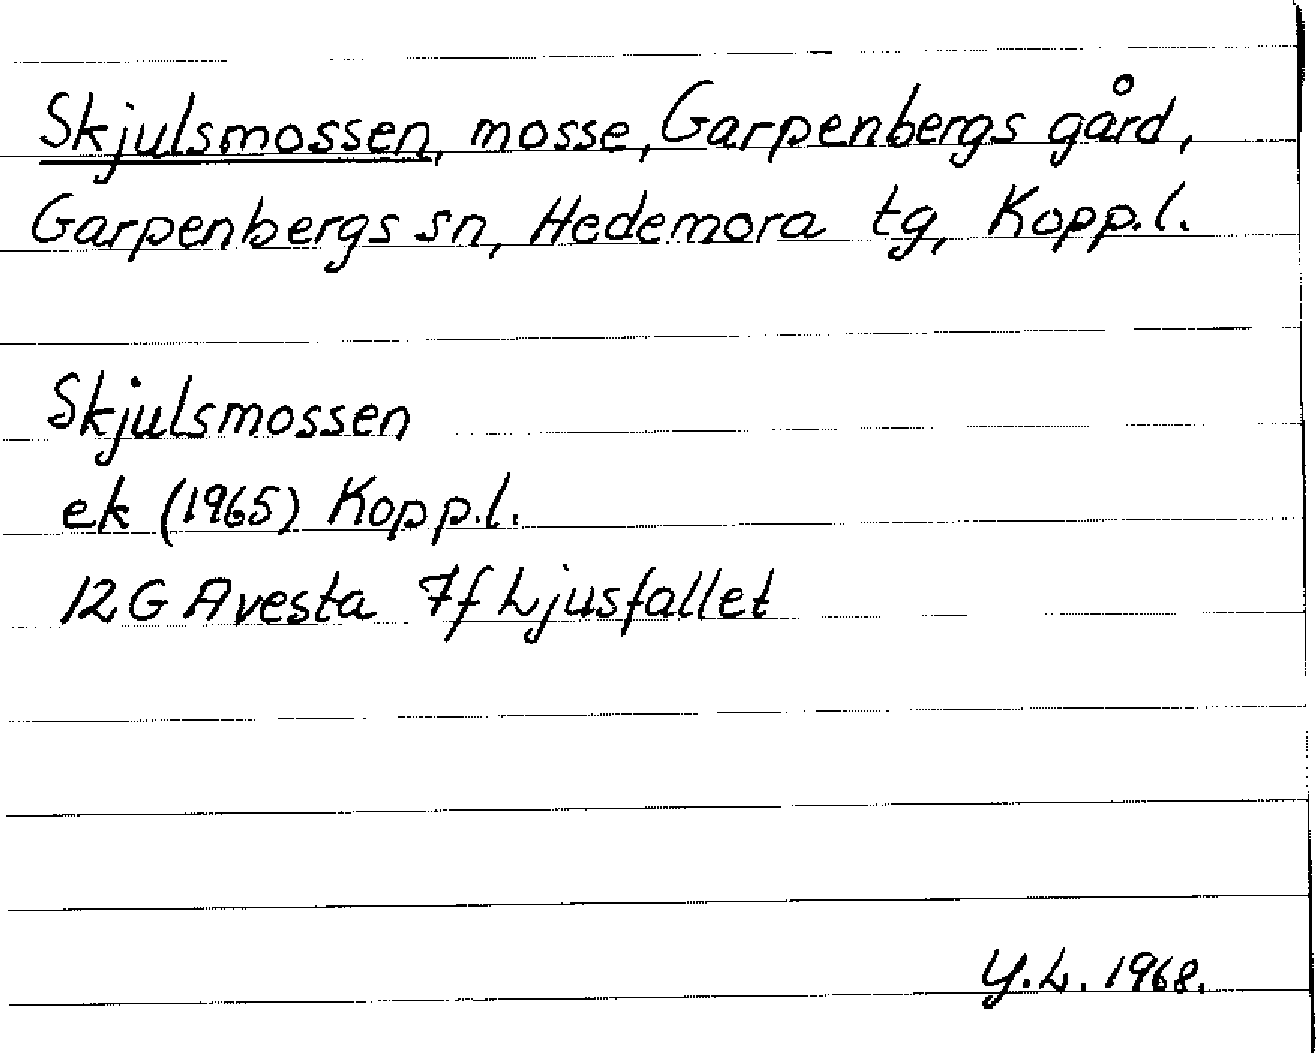 Skjulsmossen, mosse, Garpenbergs gård,
Garpenbergs sn, Hedemora tg, Kopp.l.
Skjulsmossen
ek (1965) Kopp.l.
12G Avesta 7f Ljusfallet
Y.L. 1968.